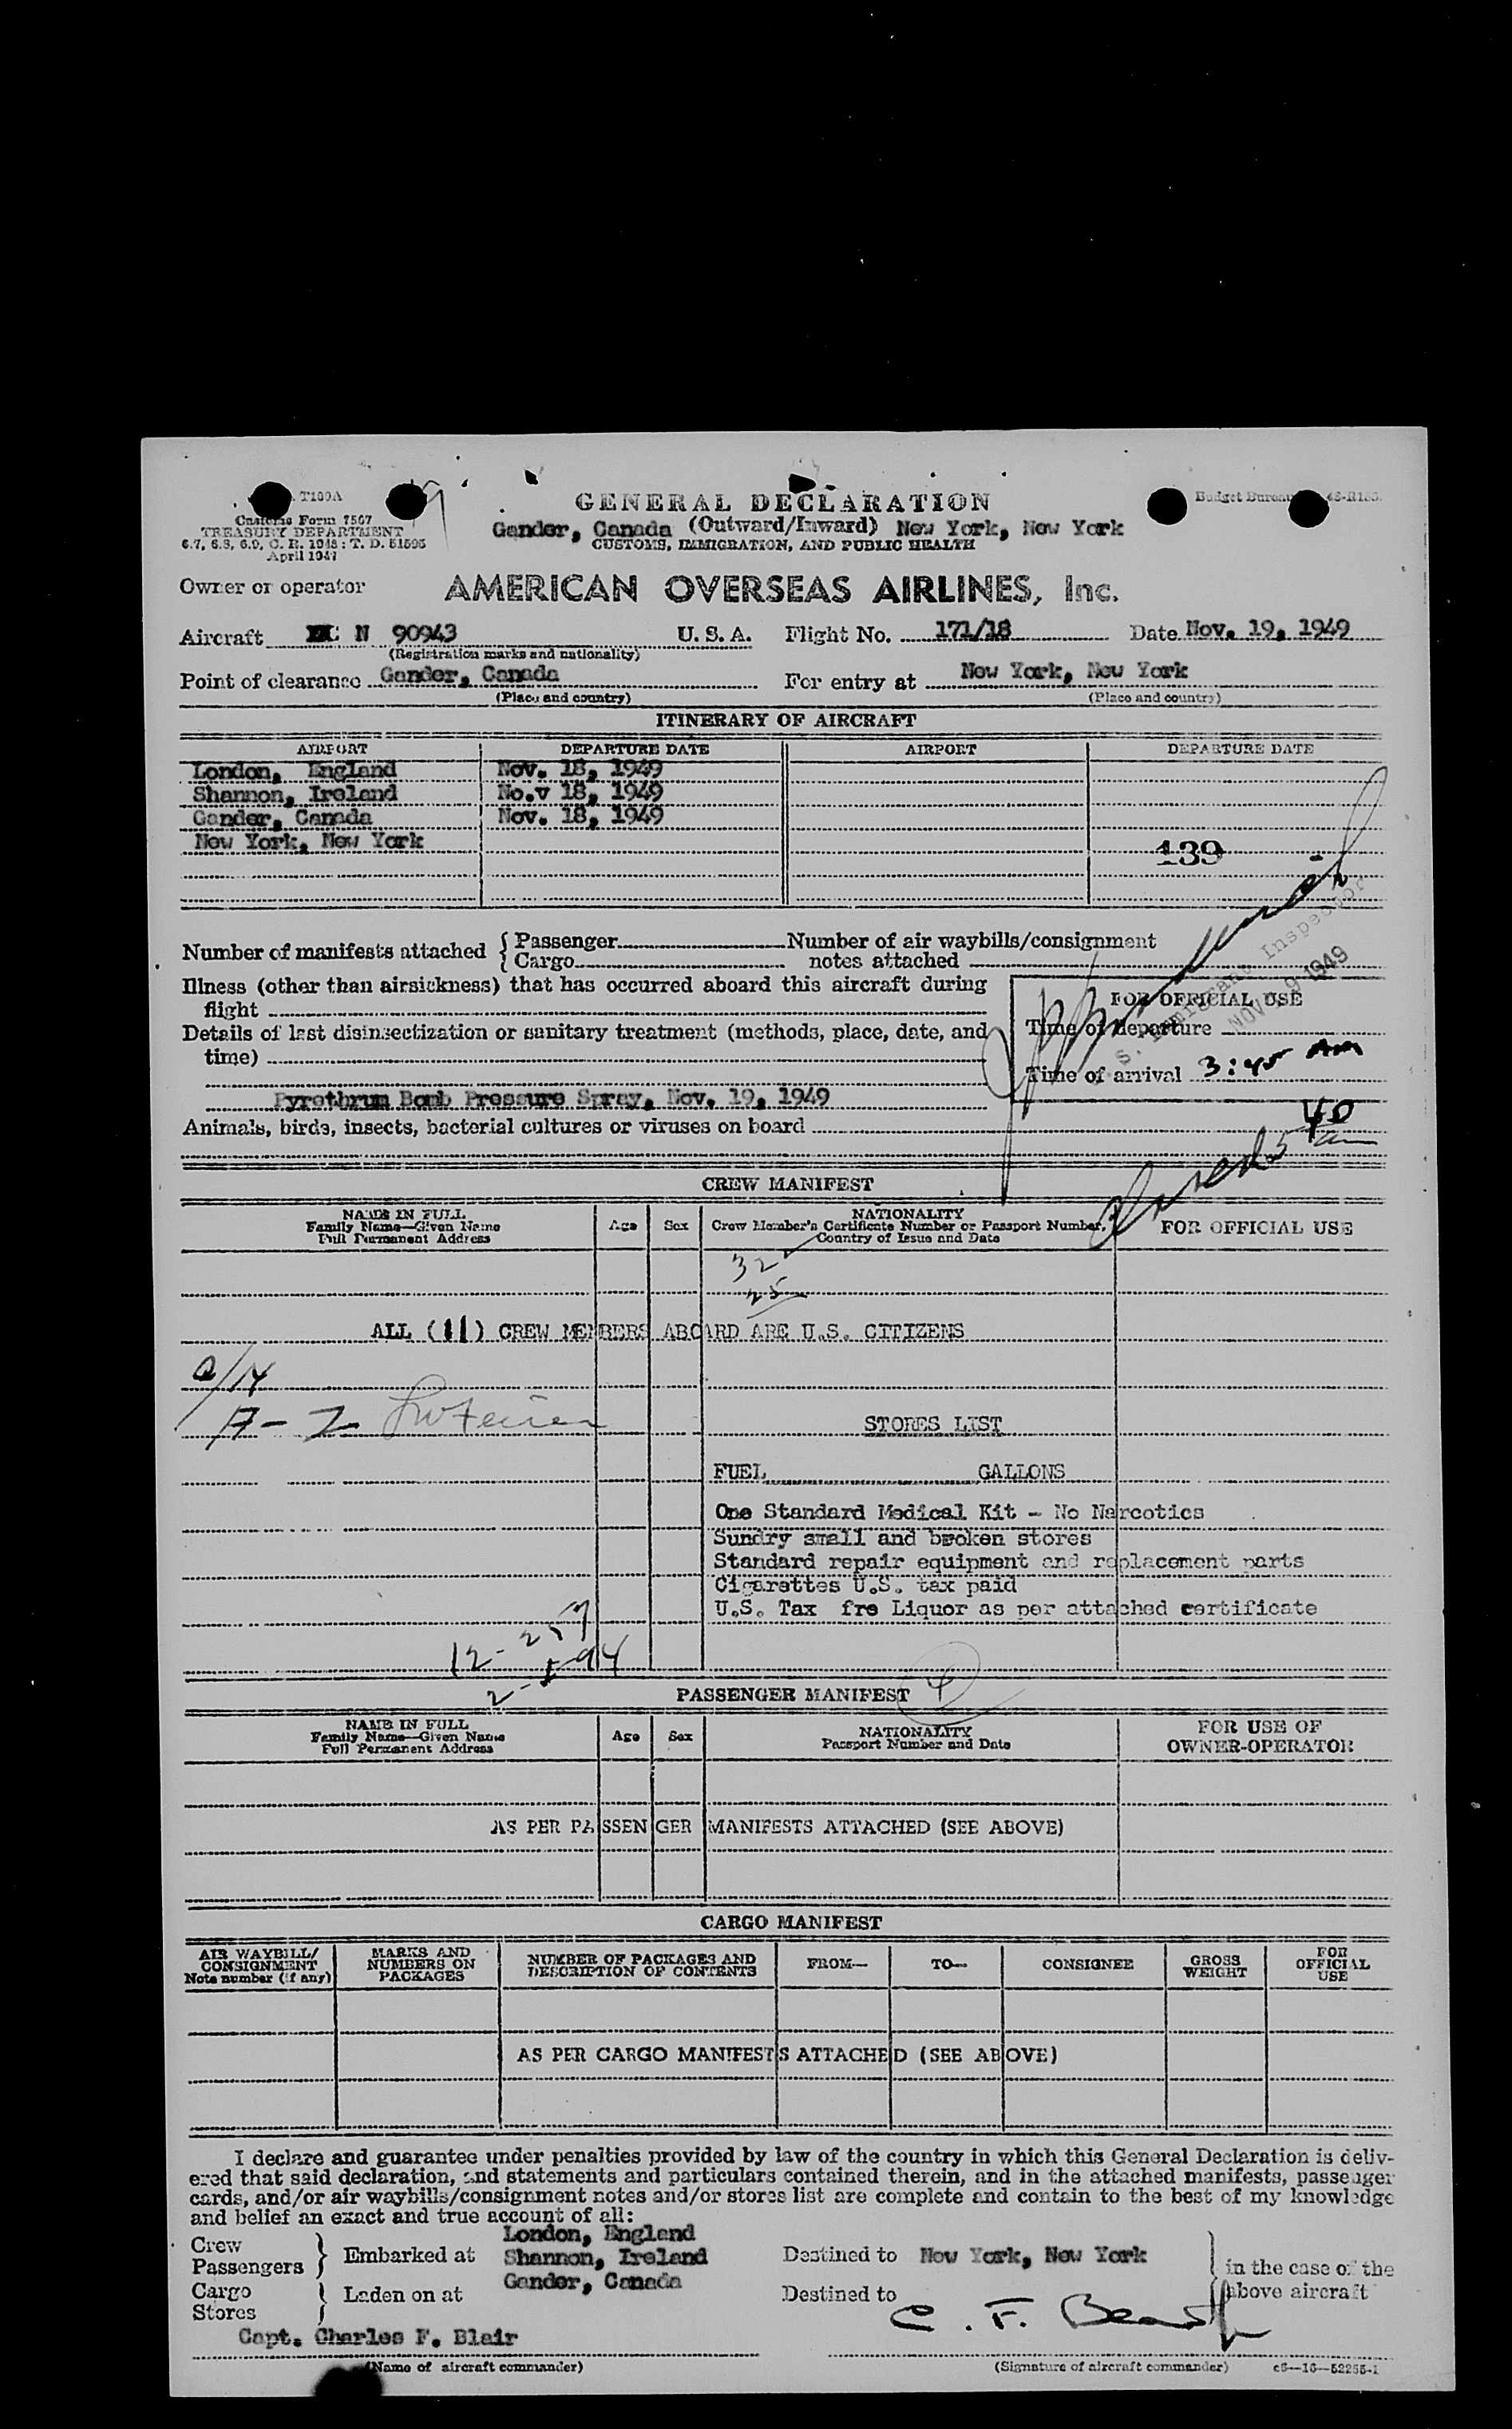 T100A
Customs Form 7507
TREASURY DEPARTMENT
6.7, 6.8, 6.9, C. R. 1948: T. D. 51595
April 1947
GENERAL DECLARATION
Gander, Canada (Outward/Inward) New York, New York
CUSTOMS, IMMIGRATION, AND PUBLIC HEALTH
Budget Bureau
Owner or operator AMERICAN OVERSEAS AIRLINES, Inc.
Aircraft N 90943 U. S. A. Flight No. 171/18 Date Nov. 19, 1949
(Registration marks and nationality)
Point of clearance Gander, Canada For entry at New York, New York
(Place and country) (Place and country)
ITINERARY OF AIRCRAFT
AIRPORT DEPARTURE DATE AIRPORT DEPARTURE DATE
London, England Nov. 18, 1949
Shannon, Ireland No.v 18, 1949
Gander, Canada Nov. 18, 1949
New York, New York
139
Number of manifests attached { Passenger Number of air waybills/consignment
{ Cargo notes attached
Illness (other than airsickness) that has occurred aboard this aircraft during
flight
FOR OFFICIAL USE
Details of last disinsectization or sanitary treatment (methods, place, date, and
time)
Time of departure
Time of arrival 3:45 AM
S. Immigrant Inspector
NOV 19 1949
Pyrethrum Bomb Pressure Spray, Nov. 19, 1949
Animals, birds, insects, bacterial cultures or viruses on board
40
CREW MANIFEST
NAME IN FULL
Family Name—Given Name
Full Permanent Address
Age Sex
NATIONALITY
Crew Member's Certificate Number or Passport Number,
Country of Issue and Date
FOR OFFICIAL USE
32
25
ALL (11) CREW MEMBERS ABOARD ARE U.S. CITIZENS
STORES LIST
FUEL GALLONS
One Standard Medical Kit - No Narcotics
Sundry small and broken stores
Standard repair equipment and replacement parts
Cigarettes U.S. tax paid
U.S. Tax fre Liquor as per attached certificate
PASSENGER MANIFEST 4
NAME IN FULL
Family Name—Given Name
Full Permanent Address
Age Sex
NATIONALITY
Passport Number and Date
FOR USE OF
OWNER-OPERATOR
AS PER PASSENGER MANIFESTS ATTACHED (SEE ABOVE)
CARGO MANIFEST
AIR WAYBILL/
CONSIGNMENT
Note number (if any)
MARKS AND
NUMBERS ON
PACKAGES
NUMBER OF PACKAGES AND
DESCRIPTION OF CONTENTS
FROM—
TO—
CONSIGNEE
GROSS
WEIGHT
FOR
OFFICIAL
USE
AS PER CARGO MANIFESTS ATTACHED (SEE ABOVE)
I declare and guarantee under penalties provided by law of the country in which this General Declaration is deliv-
ered that said declaration, and statements and particulars contained therein, and in the attached manifests, passenger
cards, and/or air waybills/consignment notes and/or stores list are complete and contain to the best of my knowledge
and belief an exact and true account of all:
Crew
Passengers } Embarked at
Cargo
Stores } Laden on at
London, England
Shannon, Ireland
Gander, Canada
Destined to New York, New York
Destined to
in the case of the
above aircraft
Capt. Charles F. Blair
(Name of aircraft commander) (Signature of aircraft commander) c6—16—52255-1